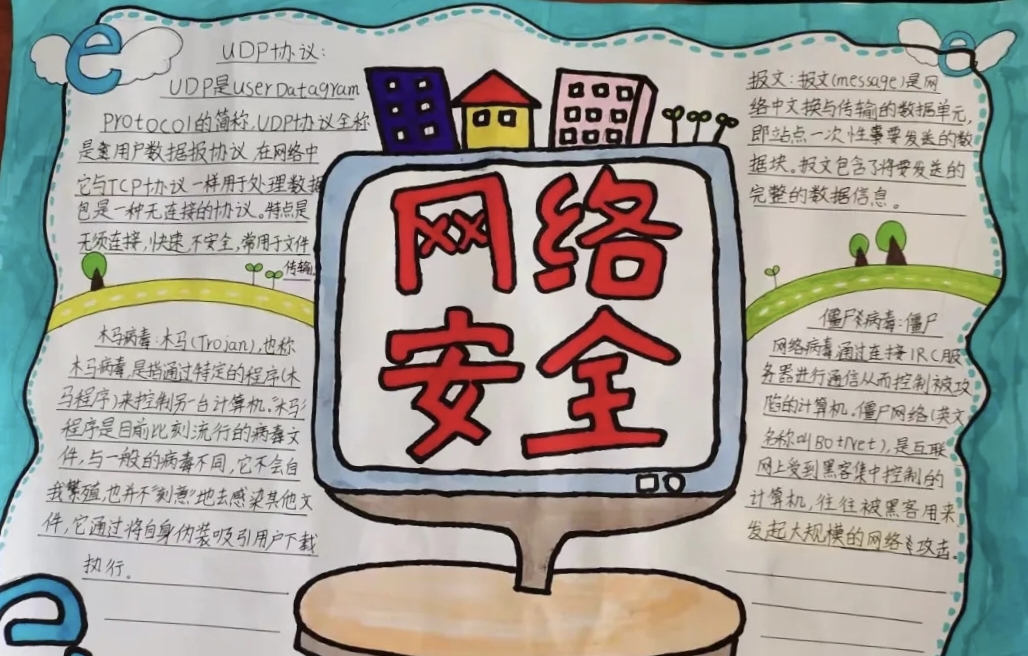 UDP协议:
UDP是userDatagram
Protocol的简称,UDP协议全称
是用户数据报协议,在网络中
它与TCP协议一样用于处理数据
包是一种无连接的协议。特点是
无须连接,快速,不安全,常用于文件
传输。
报文:报文(message)是网
络中交换与传输的数据单元,
即站点一次性要发送的数
据块。报文包含了将要发送的
完整的数据信息。
网络
安全
木马病毒:木马(Trojan),也称
木马病毒,是指通过特定的程序(木
马程序)来控制另一台计算机。"木马"
程序是目前比较流行的病毒文
件,与一般的病毒不同,它不会自
我繁殖,也并不"刻意"地去感染其他文
件,它通过将自身伪装吸引用户下载
执行。
僵尸病毒:僵尸
网络病毒通过连接IRC服
务器进行通信从而控制被攻
陷的计算机。僵尸网络(英文
名称叫BotNet),是互联
网上受到黑客集中控制的
计算机,往往被黑客用来
发起大规模的网络攻击。